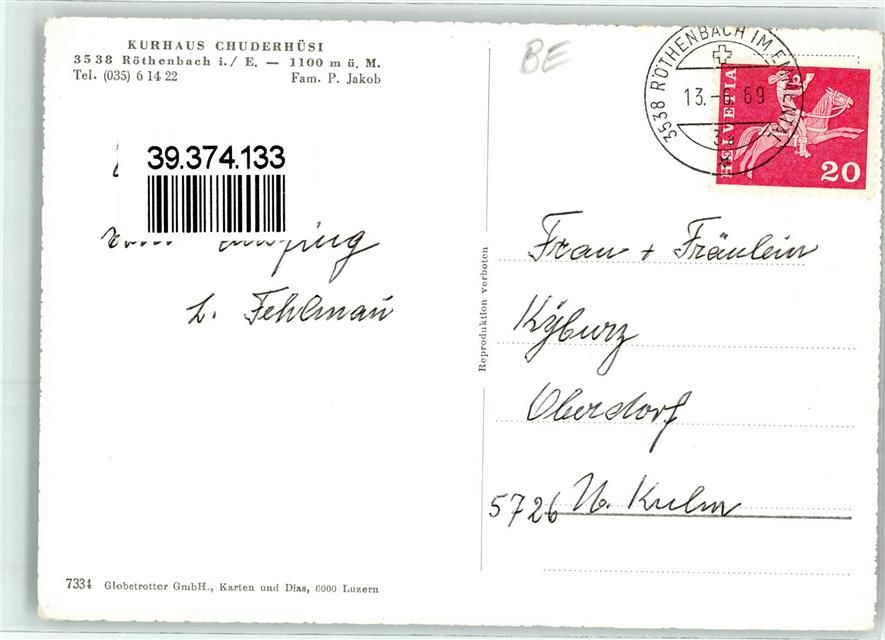 KURHAUS CHUDERHÜSI
3538 Röthenbach i./ E. — 1100 m ü. M.
Tel. (035) 6 14 22 Fam. P. Jakob
BE
3538 RÖTHENBACH IM EMMENTAL
13.-6.69
HELVETIA
20
39.374.133
L. Fehlmann
Reproduktion verboten
Frau + Fräulein
Kÿburz
Oberdorf
5726 U. Kulm
7334 Globetrotter GmbH., Karten und Dias, 6000 Luzern